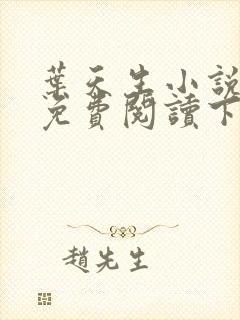 葉天生小說
免費閱讀下
趙先生